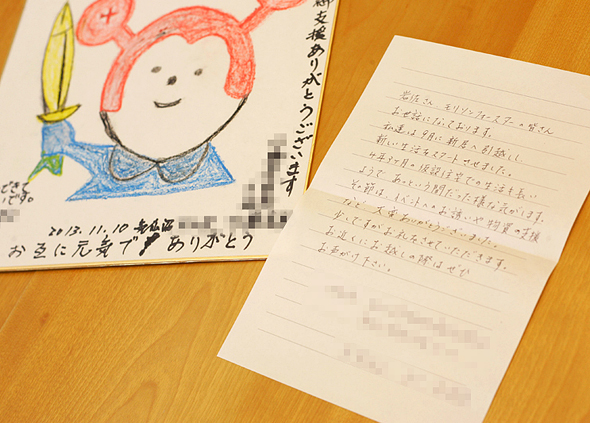 御支援ありがとうございます
できて
いです。
2013.11.10 気仙沼
お互に元気で ありがとう
岩佐さん モリソンフォースターの皆さん
お世話になっております。
私達は9月に新居へ引越しし
新しい生活をスタートさせました。
2年3ヶ月の仮設住宅での生活も長い
ようで あっという間だった様な気がします。
その節は イベントへのお誘いや物資の支援
など 大変ありがとうございました。
少しですがお礼させていただきます。
お近くにお越しの際はぜひ
お声がけ下さい。